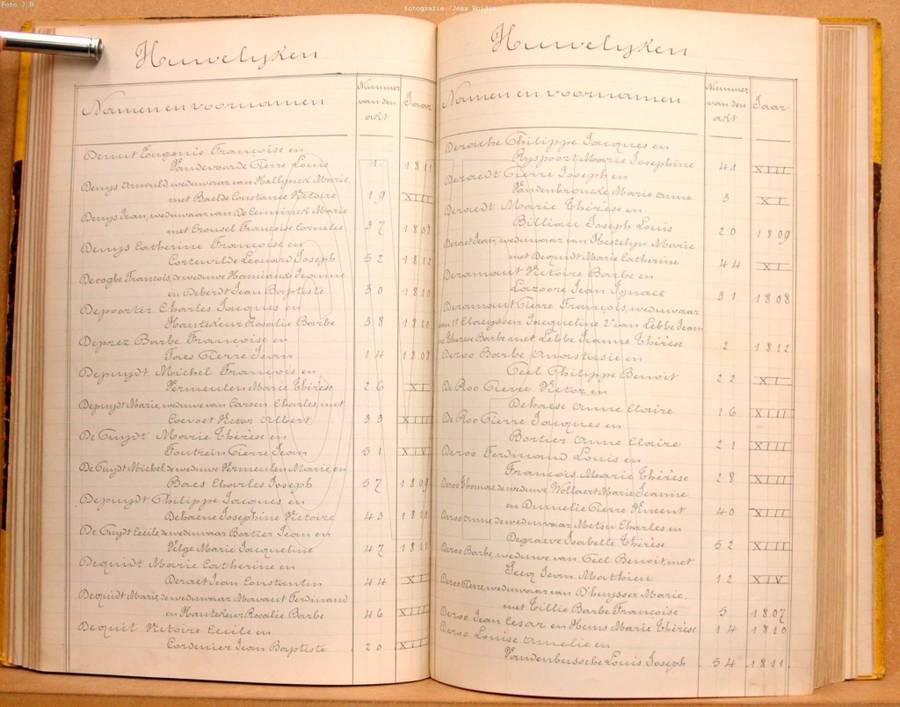 Foto J B
fotografie: Jean
Huwelijken
Namen en voornamen
Nummer van den akt
Jaar
Denut Eugenie Françoise en
Vandevoorde Pierre Louis 1 1811
Denys Arnould, weduwaar van Hallynck Marie,
met Baelde Constance Victoire 19 XIII
Denys Jean, weduwaar van De Ceuninck Marie
met Crousel Françoise Cornelie 37 1807
Denys Catherine Françoise en
Cortewilde Leonard Joseph 52 1812
Decoghe François, de weduwe Jeanne
en Deberdt Jean Baptiste 30 1810
Depoorter Charles Jacques en
Hautekeur Rosalie Barbe 38 1811
Deprez Barbe Françoise en
Fores Pierre Jean 14 1807
Depuydt Michel François en
Vermeulen Marie Thérèse 26 XI
Depuydt Marie, weduwe van Carsen Charles, met
Coevoet Victor Albert 33 XIII
De Puydt Marie Thérèse en
Toutrein Pierre Jean 51 XIX
De Puydt Michel de weduwe Vermeulen Marie, en
Baes Charles Joseph 57 1809
Depuydt Philippe Jacques en
Dehaene Josephine Victoire 43 1811
De Puydt Cecile de weduwaar Bortier Jean en
Pelge Marie Jacqueline 47 1811
Dequidt Marie Catherine en
Deraet Jean Constantin 44 XI
Dequidt Marie, de weduwaar Morvaut Ferdinand
en Hautekeur Rosalie Barbe 46 XIII
Dequit Victoire Cecile en
Cordenier Jean Baptiste 20 XIII
Huwelijken
Namen en voornamen
Nummer van den akt
Jaar
Derache Philippe Jacques en
Ryspoort Marie Josephine 41 XIII
Deraedt Pierre Joseph en
Vandenbroucke Marie Anne 3 XI
Deraedt Marie Thérèse en
Billiau Joseph Louis 20 1809
Deraet Jean, weduwaar van Hestelyn Marie
met Dequidt Marie Catherine 44 XI
Deramaut Victoire Barbe en
Lazoore Jean Ignace 31 1808
Deramaut Pierre François, weduwaar
van 1° Elaeyssen Jacqueline 2° van Lebbe Jeanne
Thérèse Barbe met Lebbe Jeanne Thérèse 2 1812
Deroo Barbe Anastasie en
Ceel Philippe Benoit 22 XI
De Roo Pierre Victor en
Dehaese Anne Claire 16 XIII
De Roo Pierre Jacques en
Bortier Anne Claire 21 XIII
Deroo Ferdinand Louis en
François Marie Thérèse 28 XIII
Deroo Thomas, de weduwe Wollaert Marie Jeanne
en Dumelie Pierre Vincent 40 XIII
Deroo Anne de weduwaar Metsu Charles en
Degraeve Isabelle Thérèse 52 XIII
Deroo Barbe, weduwe van Ceel Benoit, met
Jecq Jean Mathieu 12 XIV
Deroo Pierre, weduwaar van D'huysser Marie,
met Tillie Barbe Françoise 5 1807
Deroo Jean Cesar en Heus Marie Thérèse 14 1810
Deroo Louise Amelie en
Vandenbussche Louis Joseph 54 1811